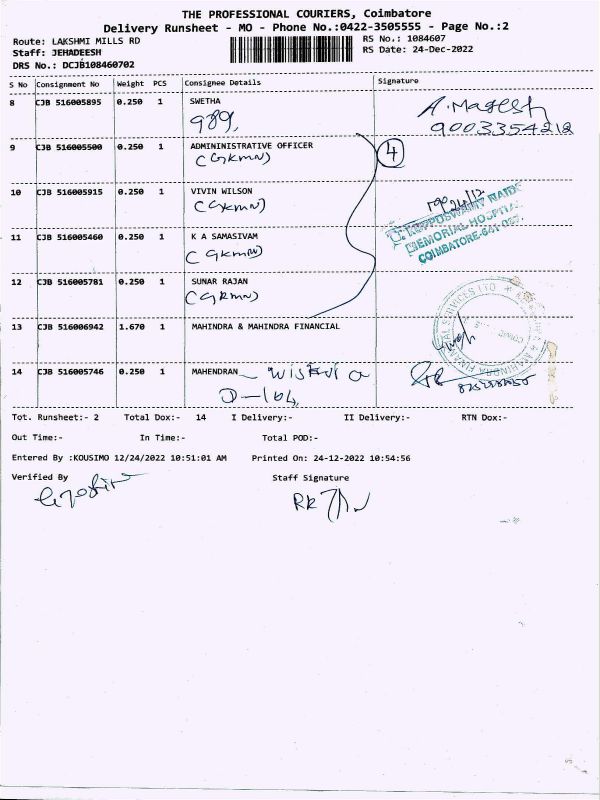 THE PROFESSIONAL COURIERS, Coimbatore
Delivery Runsheet - MO - Phone No.:0422-3505555 - Page No.:2
Route: LAKSHMI MILLS RD RS No.: 1084607
Staff: JEHADEESH RS Date: 24-Dec-2022
DRS No.: DCJB108460702
S No Consignment No Weight PCS Consignee Details Signature
8 CJB 516005895 0.250 1 SWETHA A. Magesh
989, 9003354212
9 CJB 516005500 0.250 1 ADMININISTRATIVE OFFICER
(GKMN) 4
10 CJB 516005915 0.250 1 VIVIN WILSON
(GKMN)
KUPPUSWAMY NAIDU
MEMORIAL HOSPITAL
COIMBATORE-641 037.
11 CJB 516005460 0.250 1 K A SAMASIVAM
(GKMN)
12 CJB 516005781 0.250 1 SUNAR RAJAN
(GKMN)
13 CJB 516006942 1.670 1 MAHINDRA & MAHINDRA FINANCIAL
MAHINDRA FINANCIAL SERVICES LTD
14 CJB 516005746 0.250 1 MAHENDRAN
D-104
Tot. Runsheet:- 2 Total Dox:- 14 I Delivery:- II Delivery:- RTN Dox:-
Out Time:- In Time:- Total POD:-
Entered By :KOUSIMO 12/24/2022 10:51:01 AM Printed On: 24-12-2022 10:54:56
Verified By Staff Signature